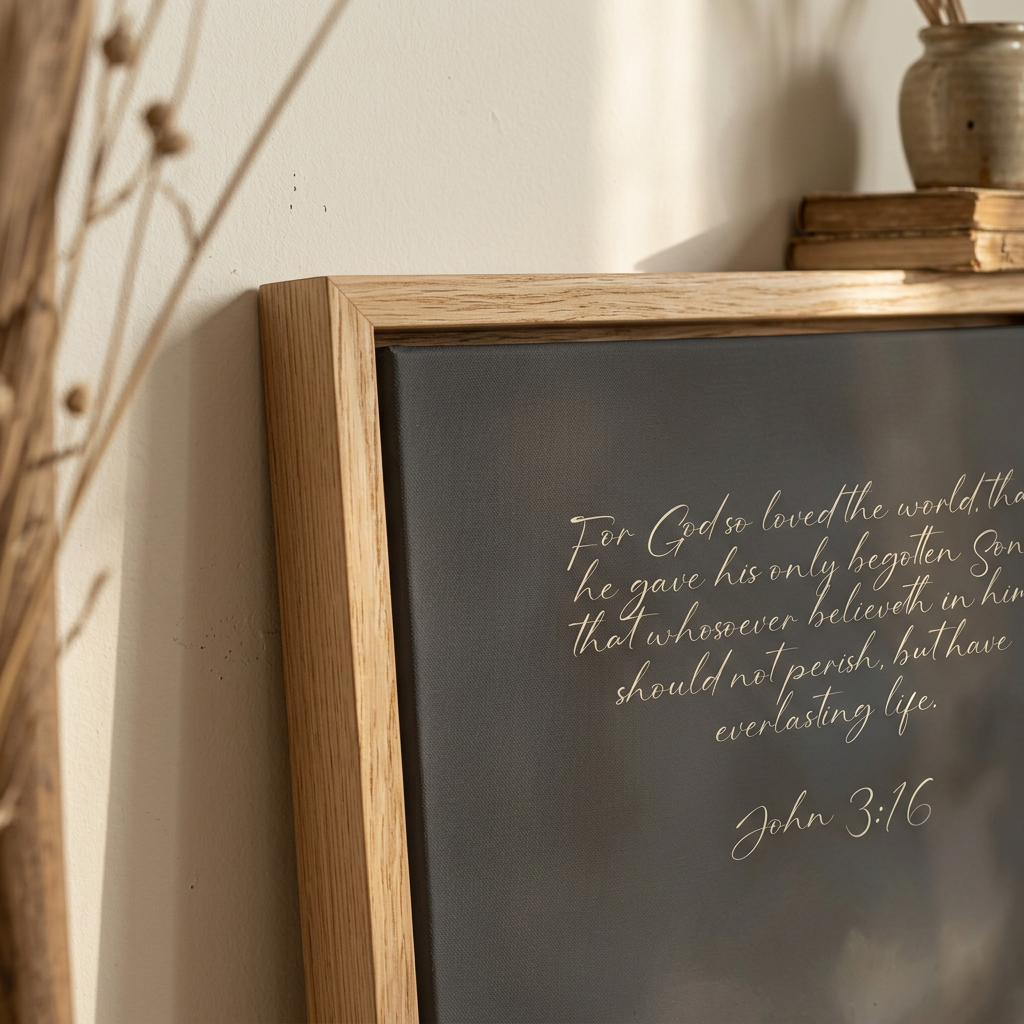 For God so loved the world, tha
he gave his only begotten Son
that whosoever believeth in him
should not perish, but have
everlasting life.
John 3:16